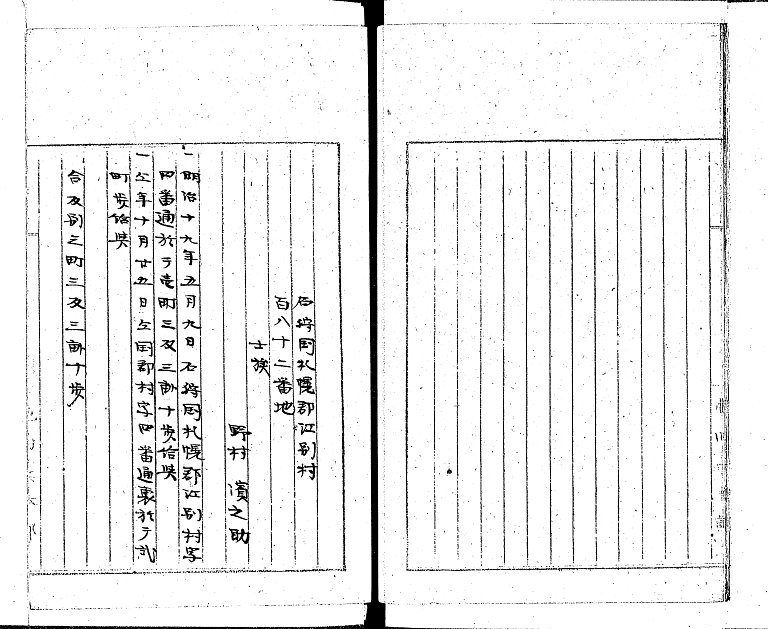 石狩国札幌郡江別村
百八十二番地
士族
野村 濱之助
一明治十九年五月九日石狩国札幌郡江別村字
四番通於テ壱町三反三畝十歩給与
一仝年十月廿五日仝国郡村字四番通裏於テ弐
町歩給与
合反別三町三反三畝十歩